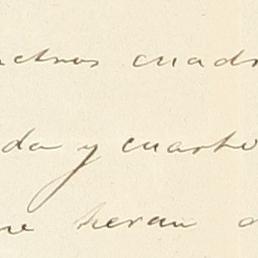 etros cuadr
da y cuarto
ue heran a